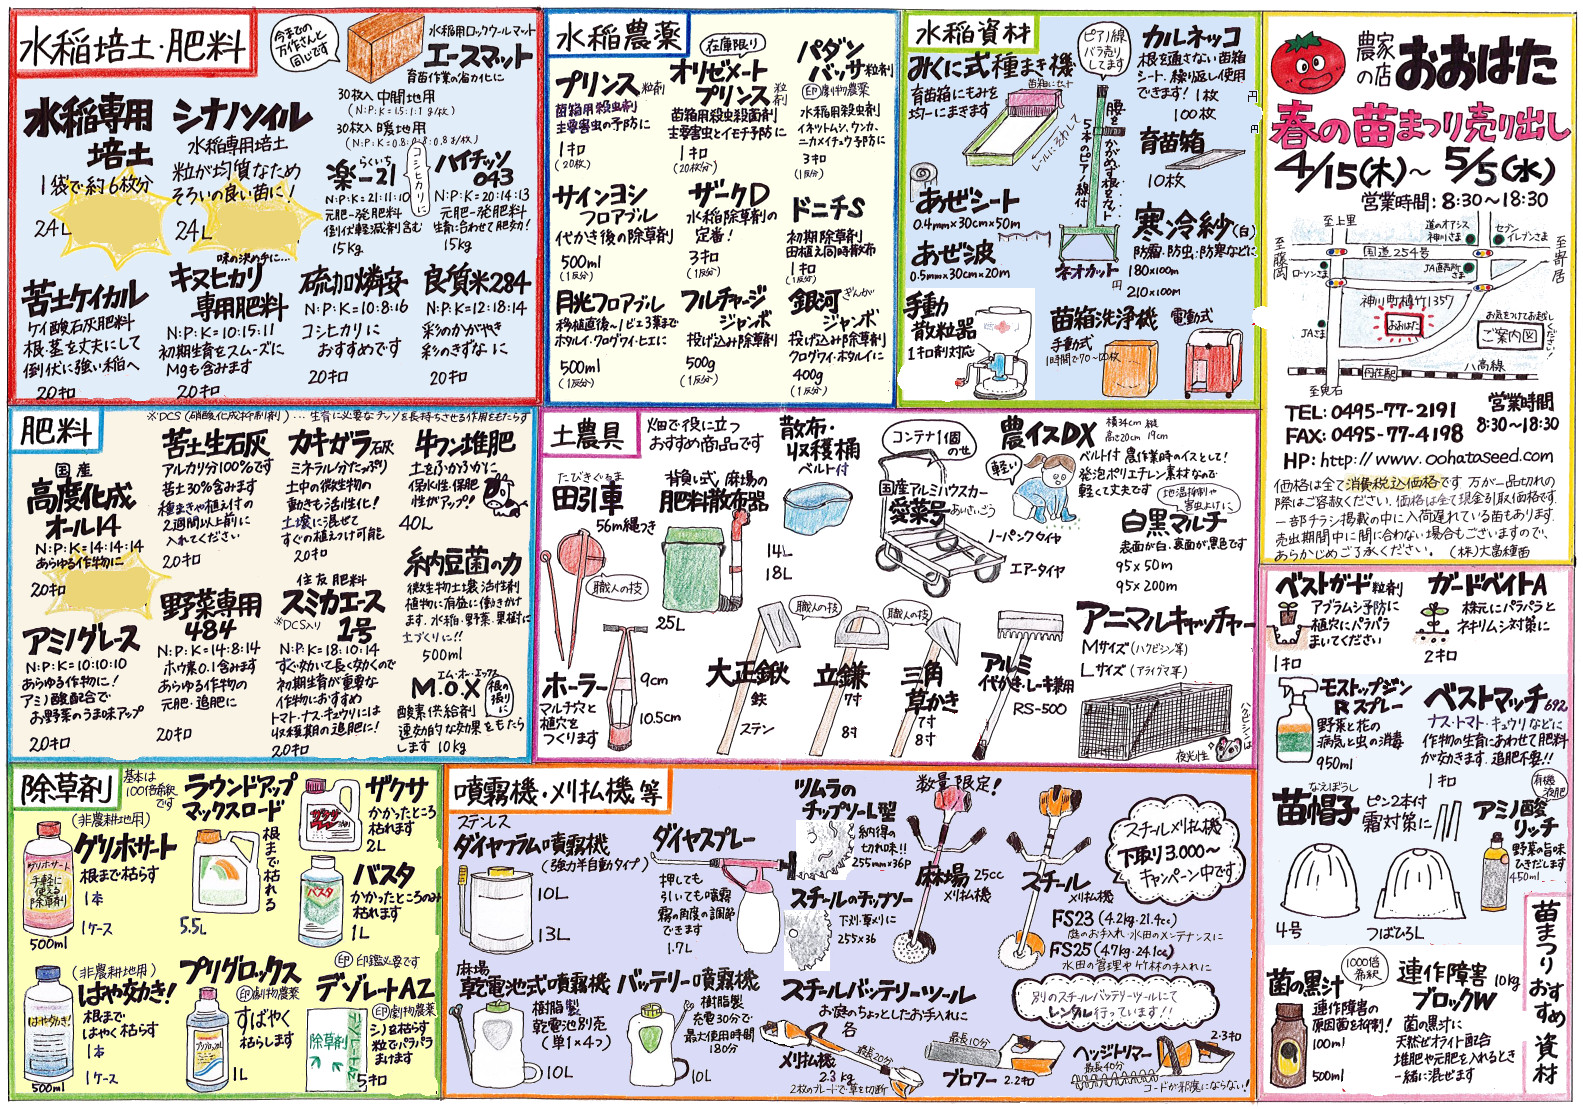 水稲培土・肥料
今までの
万作さんと
同じです
水稲用ロックウールマット
エースマット
育苗作業の省力化に
30枚入 中間地用
30枚入 暖地用
水稲専用
培土
1袋で約6枚分
24L
シナノソイル
水稲専用培土
粒が均質なため
そろいの良い苗に!
24L
らくいち
楽一21
N:P:K=21:11:10
元肥一発肥料
倒伏軽減剤含む
15kg
コシヒカリに
ハイチッソ
043
N:P:K=20:14:13
元肥一発肥料
生育に合わせて肥効!
15kg
苦土ケイカル
ケイ酸石灰肥料
根・茎を丈夫にして
倒伏に強い稲へ
20キロ
味の決め手に…
キヌヒカリ
専用肥料
N:P:K=10:15:11
初期生育をスムーズに
Mgも含みます
20キロ
硫加燐安
N:P:K=10:8:16
コシヒカリに
おすすめです
20キロ
良質米284
N:P:K=12:18:14
彩のかがやき
彩のきずなに
20キロ
水稲農薬
プリンス粒剤
苗箱用殺虫剤
主要害虫の予防に
1キロ
(20枚)
在庫限り
オリゼメート
プリンス粒剤
苗箱用殺虫殺菌剤
主要害虫とイモチ予防に
1キロ
(20枚分)
パダン
バッサ粒剤
印 劇物農薬
水稲用殺虫剤
イネツトムシ、ウンカ、
ニカメイチュウ予防に
3キロ
(1反分)
サインヨシ
フロアブル
代かき後の除草剤
500ml
(1反分)
ザークD
水稲除草剤の
定番!
3キロ
(1反分)
ドニチS
初期除草剤
田植え同時散布
1キロ
(1反分)
月光フロアブル
移植直後~ノビエ3葉まで
ホタルイ・クログワイ・ヒエに
500ml
(1反分)
フルチャージ
ジャンボ
投げ込み除草剤
500g
(1反分)
銀河ぎんが
ジャンボ
投げ込み除草剤
クログワイ・ホタルイに
400g
(1反分)
水稲資材
みくに式種まき機
育苗箱にもみを
均一にまきます
苗箱にセット
レールにそわして
ピアノ線
バラ売り
してます
腰をかがめず根をカット
5本のピアノ線付
ネオカット
カルネッコ
根を通さない苗箱
シート、繰り返し使用
できます! 1枚
100枚
円
円
育苗箱
10枚
あぜシート
0.4mm×30cm×50m
あぜ波
0.5mm×30cm×20m
寒冷紗(白)
防霜・防虫・防寒などに
180×100m
円
210×100m
手動
散粒器
1キロ剤対応
苗箱洗浄機
手動式
1時間で70~100枚
電動式
農家
の店
おおはた
春の苗まつり売り出し
4/15(木)~5/5(水)
営業時間:8:30~18:30
至上里
道のオアシス
神川さま
セブン
イレブンさま
至藤岡
国道254号
至寄居
ローソンさま
JA直売所
さま
神川町植竹1357
おおはた
JAさま
お気をつけてお越しください!
ご案内図
丹荘駅
八高線
至児玉
TEL:0495-77-2191
FAX:0495-77-4198
営業時間
8:30~18:30
HP:http://www.oohataseed.com
価格は全て消費税込価格です 万が一品切れの
際はご容赦ください。価格は全て現金引取価格です。
一部チラシ掲載の中に入荷遅れている苗もあります。
売出期間中に間に合わない場合もございますので、
あらかじめご了承ください。 (株)大畠種苗
肥料
※DCS(硝酸化成抑制剤)…生育に必要なチッソを長持ちさせる作用をもたらす
国産
高度化成
オール14
N:P:K=14:14:14
あらゆる作物に
20キロ
苦土生石灰
アルカリ分100%です
苦土30%含みます
種まきや植え付の
2週間以上前に
入れてください
20キロ
カキガラ石灰
ミネラル分たっぷり
土中の微生物の
動きも活性化!
土壌に混ぜて
すぐの植えつけ可能
20キロ
牛フン堆肥
土をふかふかに
保水性・保肥
性がアップ!!
40L
アミノグレース
N:P:K=10:10:10
あらゆる作物に!
アミノ酸配合で
お野菜のうま味アップ
20キロ
野菜専用
484
N:P:K=14:8:14
ホウ素0.1含みます
あらゆる作物の
元肥・追肥に
20キロ
住友肥料
スミカエース
※DCS入り
1号
N:P:K=18:10:14
すぐ効いて長く効くので
初期生育が重要な
作物におすすめ
トマト・ナス・キュウリには
収穫期の追肥に!
20キロ
納豆菌の力
微生物土壌活性剤
植物に有益に働きかけ
ます。水稲・野菜・果樹に
土づくりに!!
500ml
エム・オー・エックス
M.O.X
根の
張り
に
酸素供給剤
運効的な効果をもたら
します 10kg
土農具
畑で役に立つ
おすすめ商品です
たびきぐるま
田引車
56m縄つき
職人の技
背負い式 麻場の
肥料散布器
25L
散布・
収穫桶
ベルト付
14L
18L
コンテナ1個
のせ
国産アルミハウスカー
あいさいごう
愛菜号
ノーパンクタイヤ
エアータイヤ
農イスDX
横34cm 縦
高さ20cm 19cm
ベルト付 農作業時のイスとして!
発泡ポリエチレン素材なので
軽くて丈夫です
軽い
地温抑制や
害虫よけに
白黒マルチ
表面が白、裏面が黒色です
95×50m
95×200m
ホーラー
マルチ穴と
植穴を
つくります
9cm
10.5cm
職人の技
大正鍬
鉄
ステン
職人の技
立鎌
7寸
8寸
三角
草かき
7寸
8寸
アルミ
代かき・レーキ兼用
RS-500
アニマルキャッチャー
Mサイズ(ハクビシン等)
Lサイズ(アライグマ等)
ハクビシンは
夜光性
ベストガード粒剤
アブラムシ予防に
植穴にパラパラ
まいてください
1キロ
ガードベイトA
株元にパラパラと
ネキリムシ対策に
2キロ
モストップジン
Rスプレー
野菜と花の
病気と虫の消毒
950ml
ベストマッチ692
ナス・トマト・キュウリなどに
作物の生育にあわせて肥料
が効きます。追肥不要!!
1キロ
なえぼうし
苗帽子
ピン2本付
霜対策に
4号
つばひろL
有機
液肥
アミノ酸
リッチ
野菜の旨味
ひきだします
450ml
菌の黒汁
1000倍
希釈
連作障害の
原因菌を抑制!
100ml
500ml
連作障害
ブロックW
10kg
菌の黒汁に
天然ゼオライト配合
堆肥や元肥を入れるとき
一緒に混ぜます
苗まつりおすすめ資材
除草剤
基本は
100倍希釈
です
(非農耕地用)
グリホサート
根まで枯らす
1本
1ケース
グリホサート
手軽に
使える
除草剤
500ml
ラウンドアップ
マックスロード
根まで枯れる
5.5L
ザクサ
かかったところ
枯れます
2L
ザクサ
バスタ
かかったところのみ
枯れます
1L
バスタ
(非農耕地用)
はや効き!
根まで
はやく枯らす
1本
1ケース
はや効き!
500ml
プリグロックス
印劇物農薬
すばやく
枯らします
1L
印 印鑑必要です
デゾレートAZ
印劇物農薬
シノも枯らす
粒でパラパラ
まけます
除草剤
デゾレートAZ
5キロ
噴霧機・刈払機等
ステンレス
ダイヤフラム噴霧機
(強力半自動タイプ)
10L
13L
ダイヤスプレー
押しても
引いても噴霧
霧の角度の調節
できます
1.7L
ツムラの
チップソーL型
納得の
切れ味!!
255mm×36P
スチールのチップソー
下刈・草刈りに
255×36
数量限定!
麻場 25cc
刈払機
スチール
刈払機
FS23(4.2kg・21.4cc)
庭のお手入れ・水田のメンテナンスに
FS25(4.7kg・24.1cc)
水田の管理や竹林の手入れに
スチール刈払機
下取り3.000~
キャンペーン中です
麻場
乾電池式噴霧機
樹脂製
乾電池別売
(単1×4つ)
10L
バッテリー噴霧機
樹脂製
充電30分で
最大使用時間
180分
10L
スチールバッテリーツール
お庭のちょっとしたお手入れに
各
刈払機
2.3kg
最長20分
2枚のブレードで草を切断
最長10分
ブロワー
2.2キロ
別のスチールバッテリーツールにて
レンタル行っています!!
ヘッジトリマー
最長40分
2.3キロ
コードが邪魔にならない!